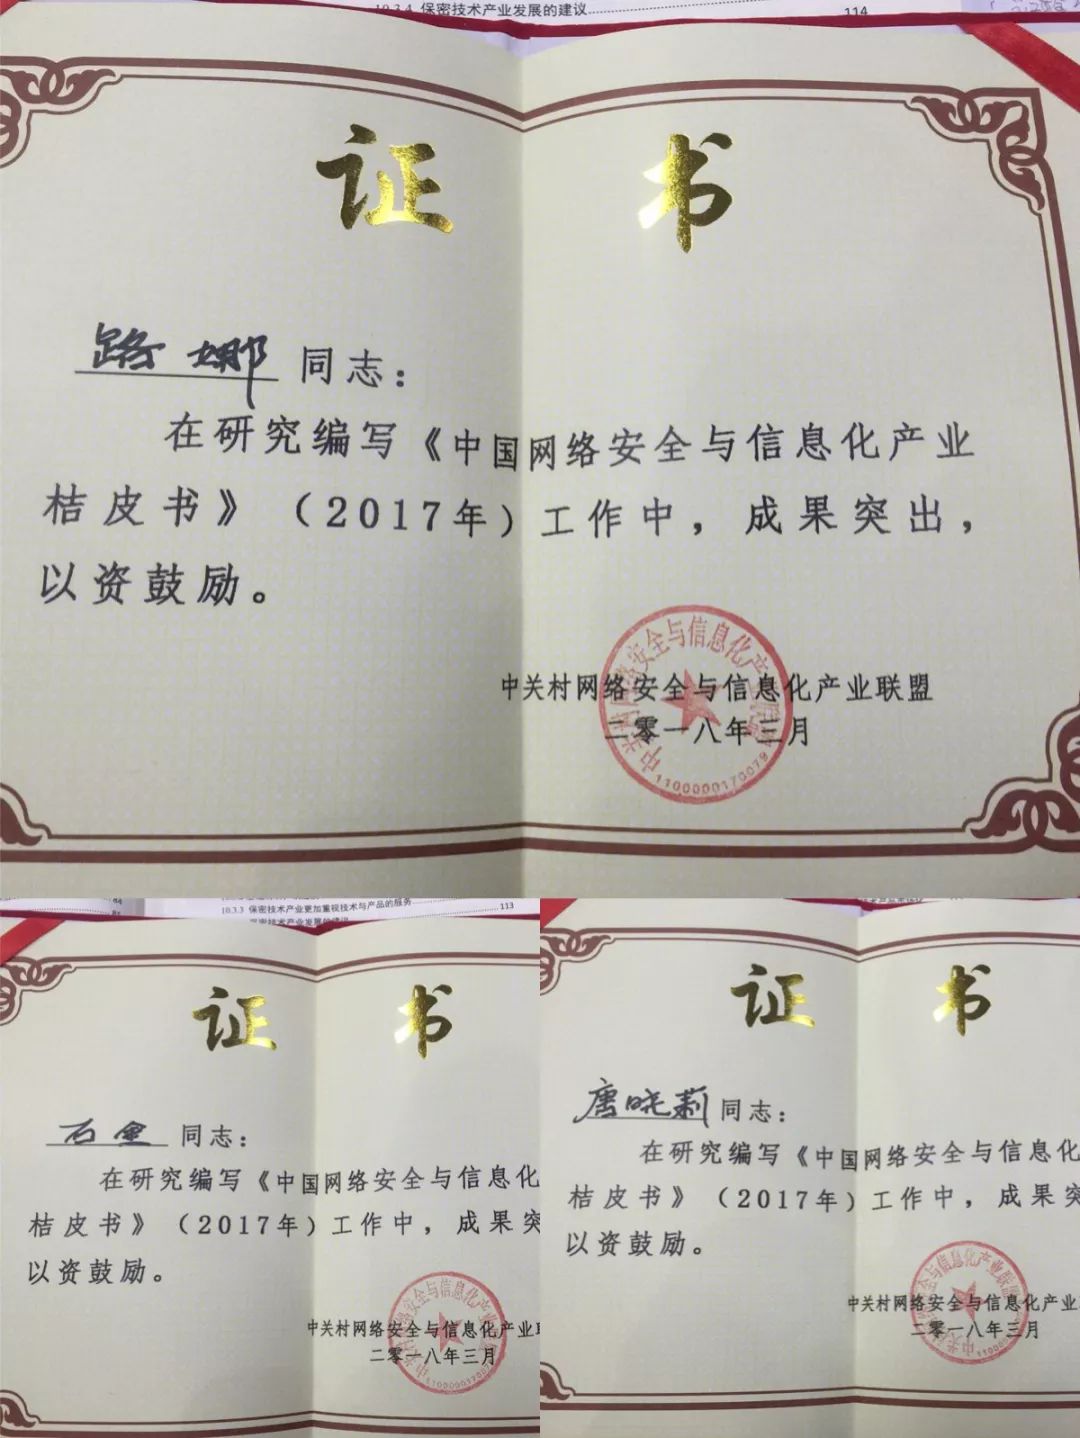 10.3.4 保密技术产业发展的建议 114
证 书
路娜 同志：
在研究编写《中国网络安全与信息化产业
桔皮书》（2017年）工作中，成果突出，
以资鼓励。
中关村网络安全与信息化产业联盟
二零一八年三月
中关村网络安全与信息化产业联盟
1100000170079
10.3.3 保密技术产业更加重视技术与产品的服务 113
保密技术产业发展的建议
证 书
石金 同志：
在研究编写《中国网络安全与信息化
桔皮书》（2017年）工作中，成果突
以资鼓励。
中关村网络安全与信息化产业
二零一八年三月
证 书
唐晓莉 同志：
在研究编写《中国网络安全与信息化
桔皮书》（2017年）工作中，成果突
以资鼓励。
中关村网络安全与信息化产业
二零一八年三月